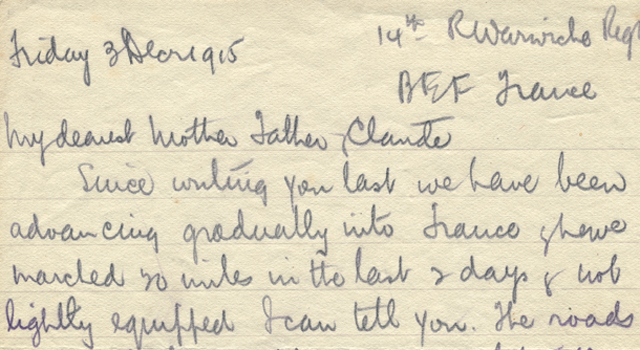 Friday 3 Decr 1915
14th R Warwicks Regt
BEF France
My dearest Mother Father & Claude
Since writing you last we have been
advancing gradually into France & have
marched 30 miles in the last 2 days & not
lightly equipped I can tell you. The roads